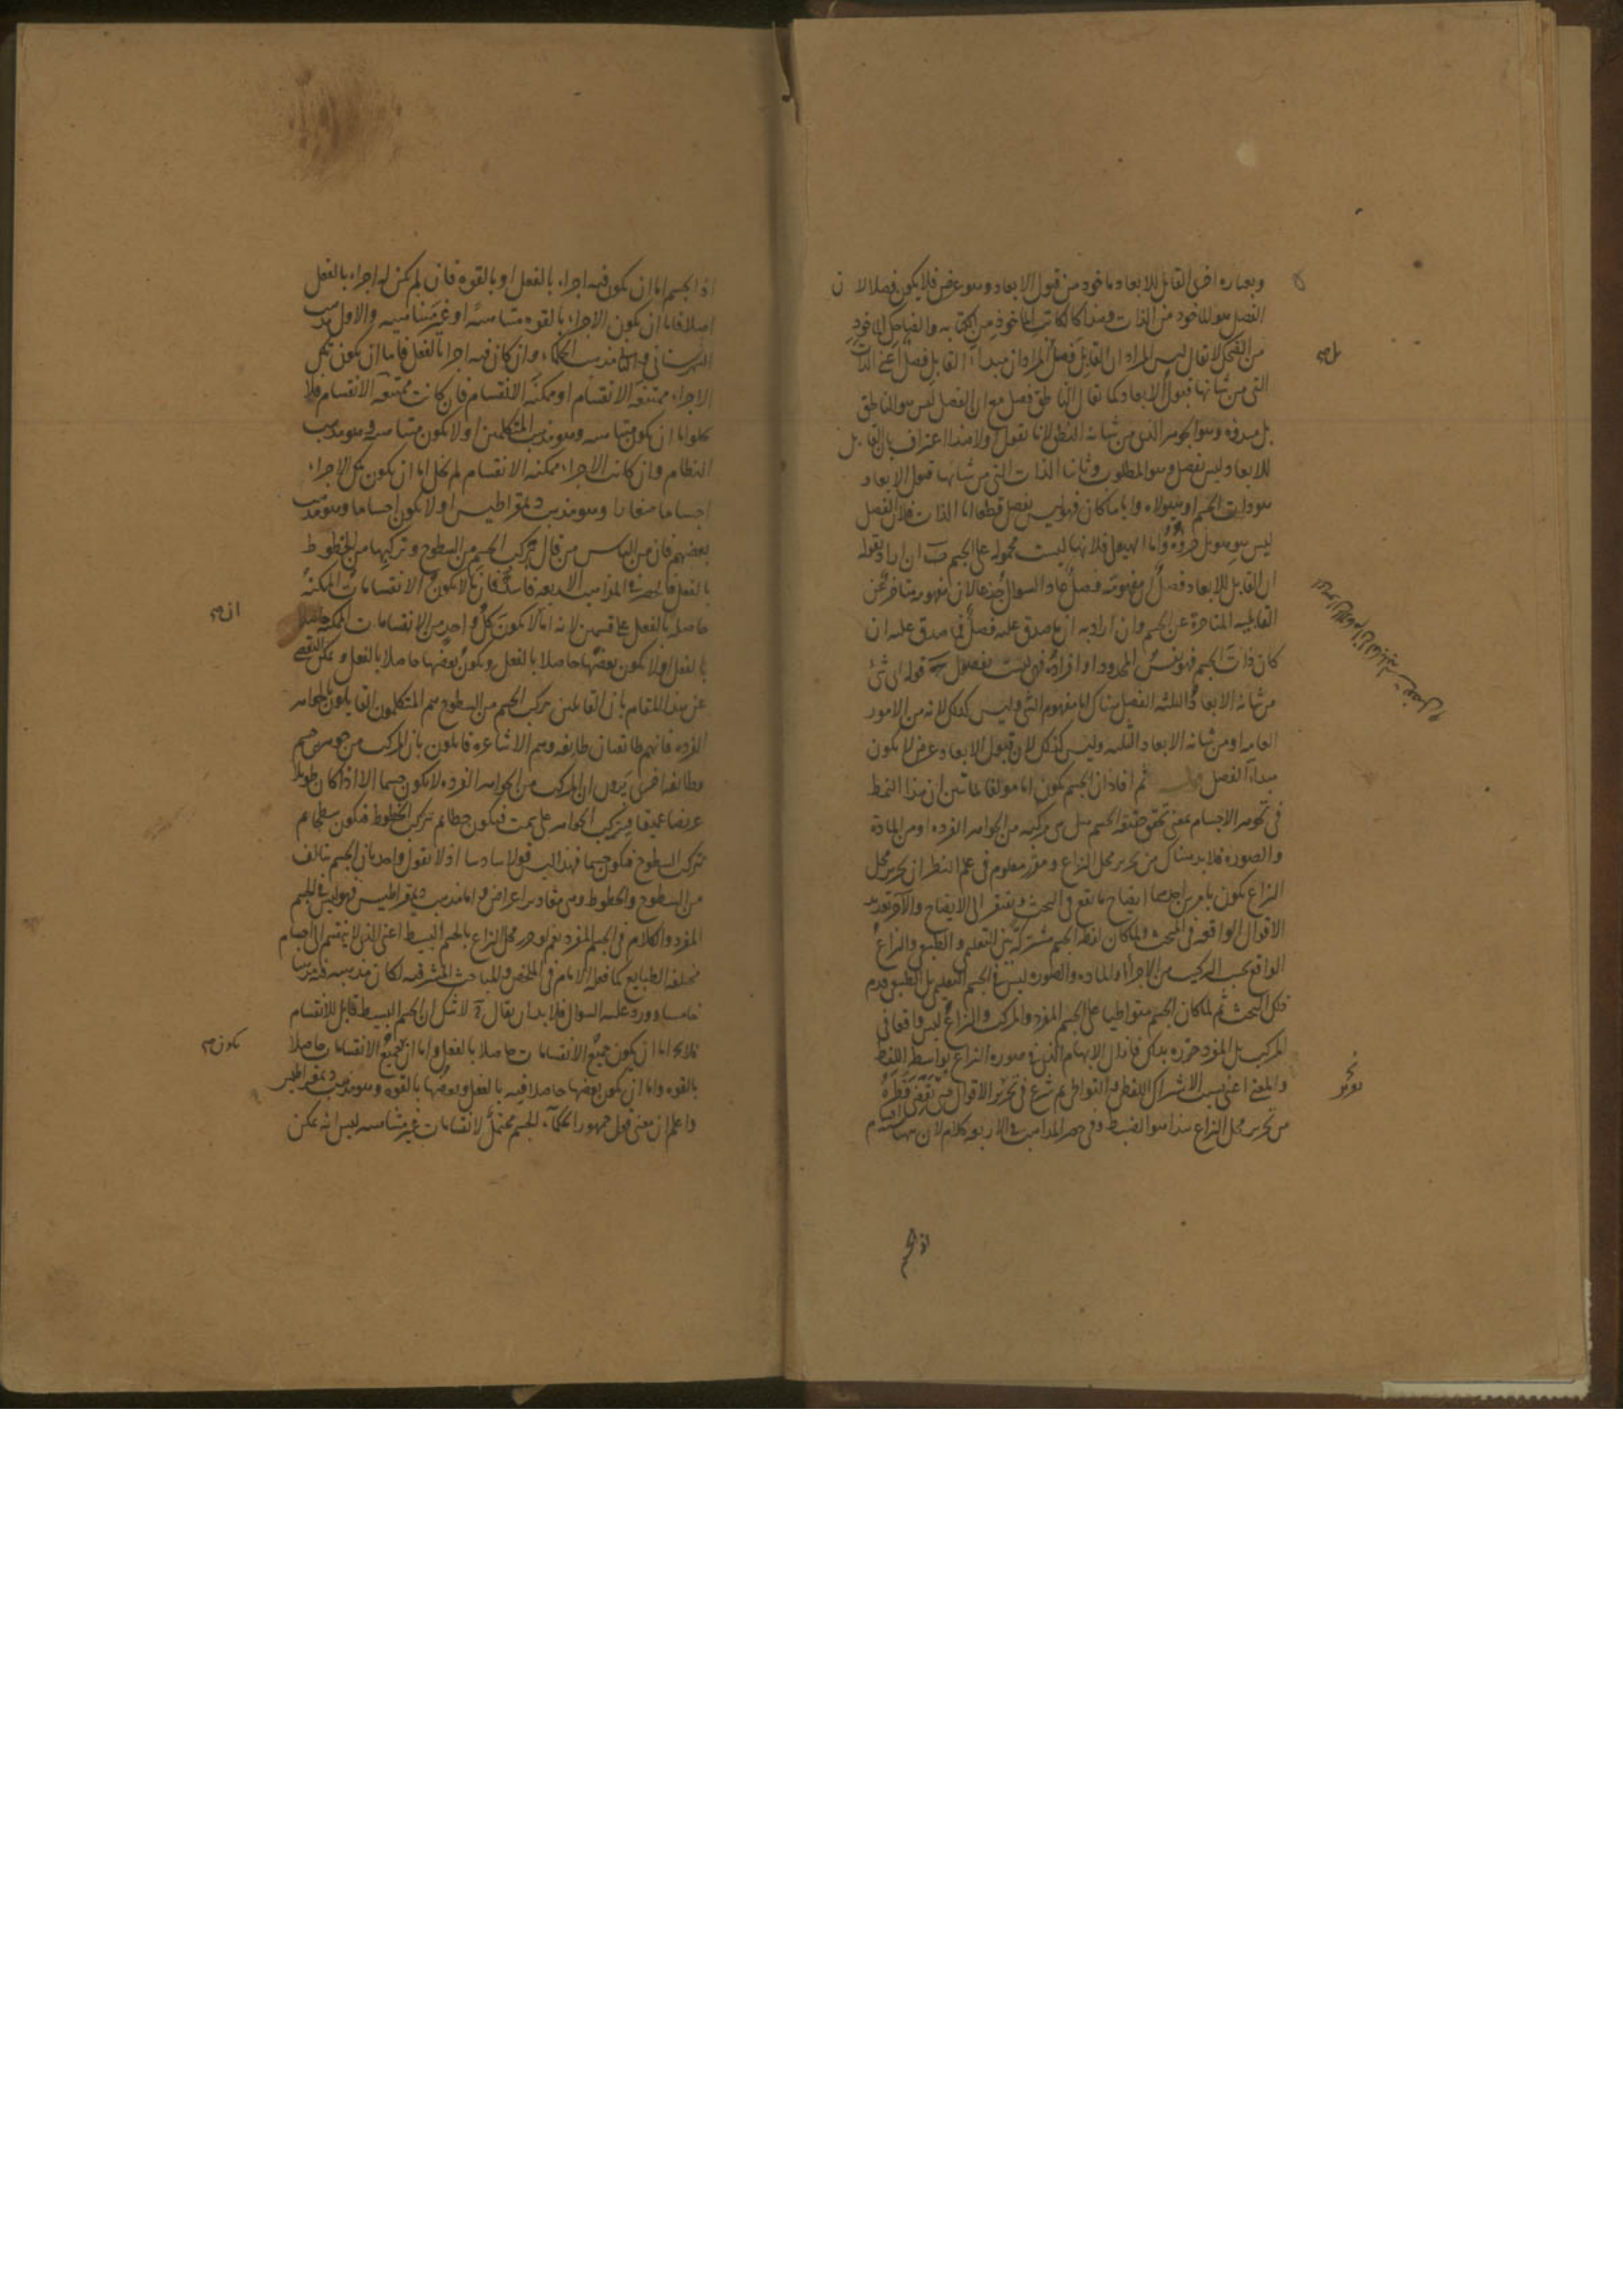 وبعباره اخرى القابل للابعاد ماخوذ من قبول الابعاد وهو عرض فلا يكون فصلا لان
الفصل هو الماخوذ من الذات وهذا كالكاتب الماخوذ من الكتابه والضاحك الماخوذ
من الضحك لا نقال ليس المراد ان القابل فصل المراد ان مبداء القابل فصل اعنى الذات
التى من شانها قبول الابعاد كما نقال الناطق فصل مع ان الفصل ليس هو الناطق
بل مبدؤه وهو الجوهر الذى من شانه النطق لانا نقول اولا هذا اعتراف بان القابل
للابعاد ليس بفصل وهو المطلوب وثانيا الذات التى من شانها قبول الابعاد
هو ذات الجسم او هيولاه وايا ما كان فهو ليس بفصل قطعا اما الذات فلان الفصل
ليس هو هو بل جزؤه واما الهيولى فلانها ليست محموله على الجسم ان اراد بقوله
ان القابل للابعاد فصل ان مفهومه فصل عاد السوال جذعا لان مفهومه متاخر عن
القابليه المتاخره عن الجسم وان اراد به ان ما صدق عليه فصل فما صدق عليه ان
كان ذات الجسم فهو نفس المحدود او افراده فهى ليست بفصول قوله اى شئ
من شانه الابعاد الثلثه الفصل هناك اما مفهوم الشئ وليس كذلك لانه من الامور
العامه او من شانه الابعاد الثلثه وليس كذلك لان قبول الابعاد عرض لا يكون
مبداء الفصل ثم افاد ان الجسم يكون اما مولفا لما تبين ان هذا النمط
فى تجوهر الاجسام بمعنى تحقق حقيقه الجسم هل هى مركبه من الجواهر الفرده او من الماده
والصوره فلا بد هناك من تحرير محل النزاع ومقرر معلوم فى علم النظر ان تحرير محل
النزاع يكون بامرين احدهما ايضاح ما يقع فى البحث ويفتقر الى الايضاح والاخر تعديد
الاقوال الواقعه فى المبحث ولما كان لفظ الجسم مشتركة بين التعليمى والطبيعى والنزاع
الواقع بحسب التركيب من الاجزاء او الماده والصوره ليس فى الجسم التعليمى بل الطبيعى قدم
ذلك البحث ثم لما كان الجسم متواطيا على الجسم المفرد والمركب والنزاع ليس واقعا فى
المركب بل المفرد حرره بذلك فازال الابهام الذى فى صوره النزاع بواسطه اللفظ
والمعنى اعنى بسبب الاشتراك اللفظى والتواطى ثم شرع فى تحرير الاقوال
من تحرير محل النزاع هذا هو الضبط وفى حصر المذاهب فى الاربعه كلام لان ههنا
اذ الجسم
اذ الجسم اما ان يكون فيه اجزاء بالفعل او بالقوه فان لم يكن له اجزاء بالفعل
اصلا فاما ان يكون الاجزاء بالقوه متناهيه او غير متناهيه والاول مذهب
الشهرستانى والثانى مذهب الحكماء وان كان فيه اجزاء بالفعل فاما ان يكون تلك
الاجزاء ممتنعه الانقسام او ممكنه الانقسام فان كانت ممتنعه الانقسام فلا
يخلوا اما ان يكون متناهيه وهو مذهب المتكلمين او لا يكون متناهيه وهو مذهب
النظام وان كانت الاجزاء ممكنه الانقسام لم يخل اما ان يكون تلك الاجزاء
اجساما صغارا وهو مذهب ديمقراطيس او لا يكون اجساما وهو مذهب
بعضهم فان من الناس من قال بتركب الجسم من السطوح وتركبها من الخطوط
بالفعل فالحصر فى المذاهب الاربعه فاسد فان ما لا يكون الانقسامات الممكنة
حاصله بالفعل على قسمين لانه اما لا يكون كل واحد من الانقسامات الممكنه حاصلا
بالفعل او لا يكون بعضها حاصلا بالفعل ويكون بعضها حاصلا بالفعل ويمكن التفصى
عن هذا المقام بان القائلين بتركب الجسم من السطوح هم المتكلمون القايلون بالجواهر
الفرده فانهم طائفتان طايفه وهم الاشاعره قايلون بان المركب من جوهرين جسم
وطائفه اخرى يرون ان المركب من الجواهر الفرده لا يكون جسما الا اذا كان طويلا
عريضا عميقا فيتركب الجواهر على سمت فيكون خطا ثم يتركب الخطوط فيكون سطحا ثم
يتركب السطوح فيكون جسما فهذا ليس قولا سادسا اذ لا يقول واحد بان الجسم يتالف
من السطوح والخطوط وهى مقادير اعراض واما مذهب ديمقراطيس فهو ليس فى الجسم
المفرد والكلام فى الجسم المفرد نعم لو حرر محل النزاع بالجسم البسيط اعنى الذى لا ينقسم الى اجسام
مختلفه الطبايع كما فعله الامام فى الملخص والمباحث المشرقيه لكان مذهبه فيه مذهبا
خامسا وورد عليه السوال فلا بد ان يقال لا شك ان الجسم البسيط قابل للانقسام
فلا يخ اما ان يكون جميع الانقسامات حاصلا بالفعل واما ان جميع الانقسامات حاصلا
بالقوه واما ان يكون بعضها حاصلا فيه بالفعل وبعضها بالقوه وهو مذهب ديمقراطيس
واعلم ان معنى قول جمهور الحكماء الجسم محتمل لانقسامات غير متناهيه ليس انه يمكن
ان صح
يكون صح